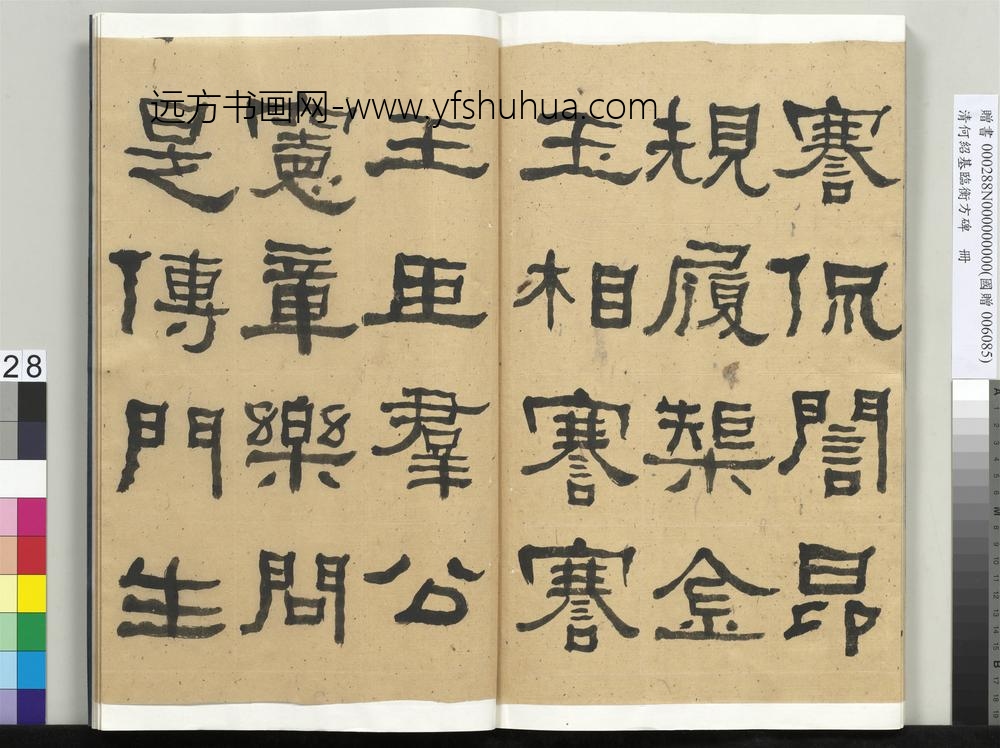 謇侃誾昂
規履榘金
玉相謇謇
王臣羣公
憲章樂問
是傳門生
远方书画网-www.yfshuhua.com
贈書 000288N000000000(國贈 006085)
清何紹基臨衡方碑 冊
28